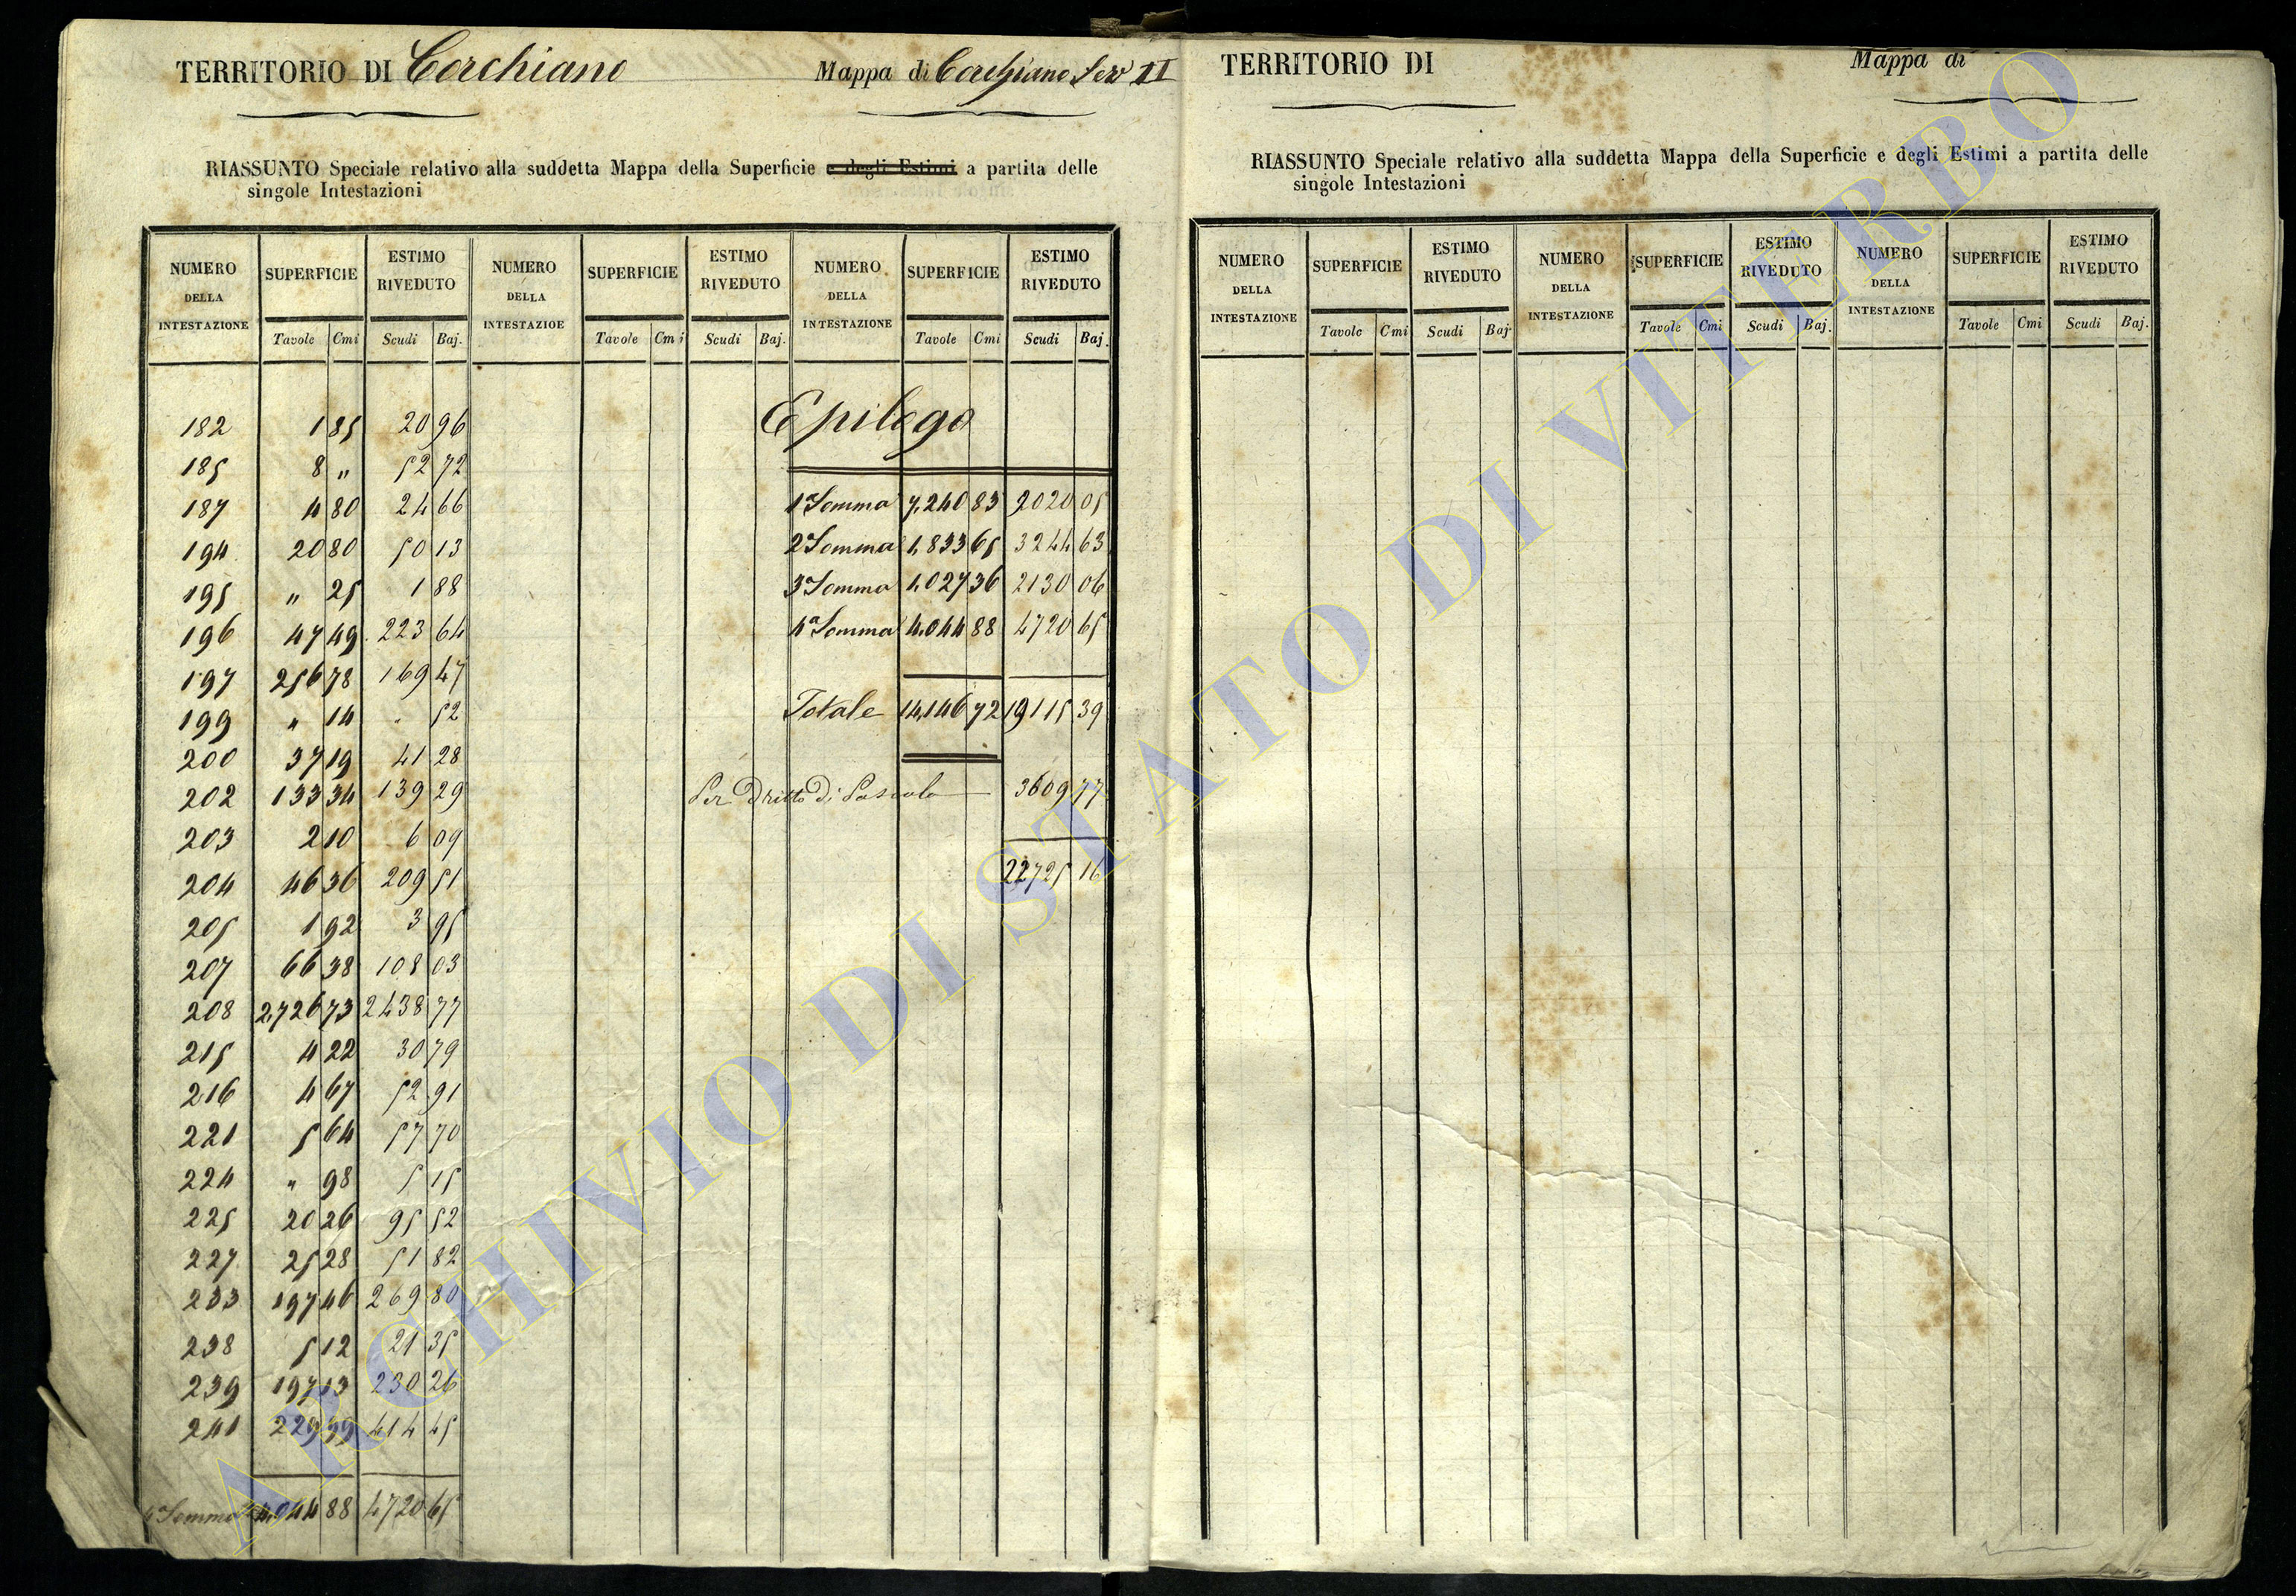 TERRITORIO DI Corchiano Mappa di Corchiano Sez II
RIASSUNTO Speciale relativo alla suddetta Mappa della Superficie e degli Estimi a partita delle
singole Intestazioni
NUMERO DELLA INTESTAZIONE SUPERFICIE ESTIMO RIVEDUTO NUMERO DELLA INTESTAZIOE SUPERFICIE ESTIMO RIVEDUTO NUMERO DELLA INTESTAZIONE SUPERFICIE ESTIMO RIVEDUTO
Tavole Cmi Scudi Baj. Tavole Cmi Scudi Baj. Tavole Cmi Scudi Baj.
182 1 85 20 96
185 8 " 52 72
187 4 80 24 66
194 20 80 50 13
195 " 25 1 88
196 47 49 223 64
197 256 78 169 47
199 " 14 " 52
200 37 19 41 28
202 133 34 139 29
203 2 10 6 09
204 46 36 209 51
205 1 92 3 95
207 66 38 108 03
208 2,726 73 2438 77
215 4 22 30 79
216 4 67 52 91
221 5 64 57 70
224 " 98 5 15
225 20 26 95 52
227 25 28 51 82
233 197 46 269 80
238 5 12 21 35
239 197 13 230 26
241 229 99 414 45
4a Somma 4,044 88 4720 65
Epilogo
1a Somma 7,240 83 9020 05
2a Somma 1,833 65 3244 63
3a Somma 1,027 36 2130 06
4a Somma 4,044 88 4720 65
Totale 14,146 72 19115 39
Per Dritto Di Pascolo 3609 77
22725 16
TERRITORIO DI Mappa di
RIASSUNTO Speciale relativo alla suddetta Mappa della Superficie e degli Estimi a partita delle
singole Intestazioni
NUMERO DELLA INTESTAZIONE SUPERFICIE ESTIMO RIVEDUTO NUMERO DELLA INTESTAZIONE SUPERFICIE ESTIMO RIVEDUTO NUMERO DELLA INTESTAZIONE SUPERFICIE ESTIMO RIVEDUTO
Tavole Cmi Scudi Baj. Tavole Cmi Scudi Baj. Tavole Cmi Scudi Baj.
ARCHIVIO DI STATO DI VITERBO